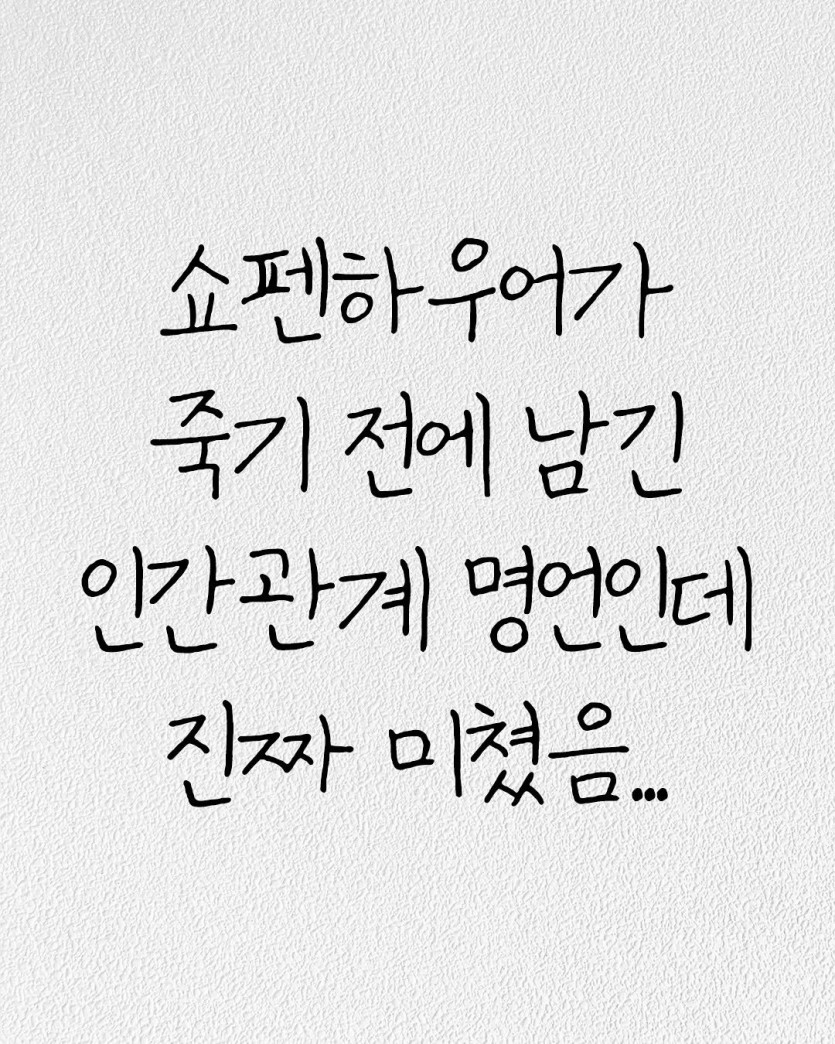 쇼펜하우어가
죽기 전에 남긴
인간관계 명언인데
진짜 미쳤음...